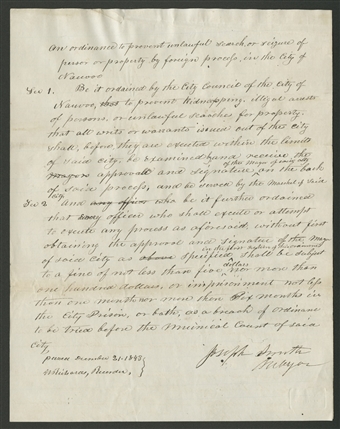 An ordinance to prevent unlawful search or seizure of
person or property by foreign process, in the City of
Nauvoo
Sec 1. Be it ordained by the City Council of the City of
Nauvoo, that to prevent kidnapping, illegal arrests
of persons, or unlawful searches for property,
that all writs or warrants issued out of the City
shall, before they are executed within the limits
of said city, be examined by and receive the
approval and signature of the Mayor of said city on the back
of said process, and be served by the Marshal of said
city
Sec 2. And be it further ordained
that any officer who shall execute or attempt
to execute any process as aforesaid, without first
obtaining the approval and signature of the Mayor
of said city as above specified in the first section of this ordinance shall be subject
to a fine of not less than five dollars nor more than
one hundred dollars, or imprisonment not less
than one month nor more than six months in
the City Prison, or both, as a breach of ordinance
to be tried before the Municipal Court of said
City,
passed December 21. 1843
W Richards, Recorder,
Joseph Smith
Mayor